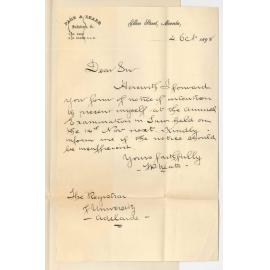 Ellen Street, Moonta,
4 Oct 1898
Dear Sir
Herewith I forward
you form of notice of intention
to present myself at the Annual
Examination in Law held on
the 14th Nov next. Kindly
inform me if the notice should
be insufficient
Yours faithfully
The Registrar
University
Adelaide